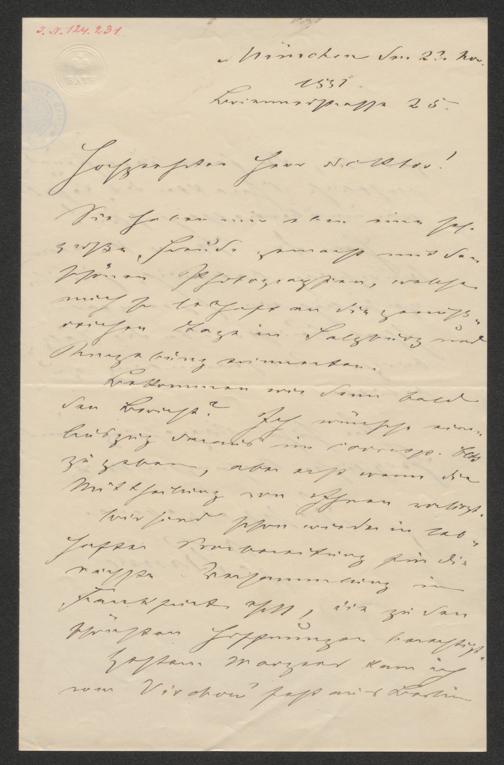 J.N. 124.231
München den 23. Nov.
1881.
Briennerstrasse 25.
Hochgeehrter Herr Doktor!
Sie haben mir eben eine sehr
große Freude gemacht mit den
schönen Photographien, welche
mich so lebhaft an die genuß-
reichen Tage in Salzburg und
Umgebung erinnerten.
Bekommen wir denn bald
den Bericht? Ich wünsche einen
Auszug daraus im Corresp. Blatt
zu geben, aber erst wenn die
Mittheilung von Ihnen vorliegt.
Wir sind schon wieder in leb-
hafter Vorbereitung für die
nächste Versammlung in
Frankfurt, die zu den
schönsten Hoffnungen berechtigt.
Gestern Morgens kam ich
vom Virchow Fest aus Berlin